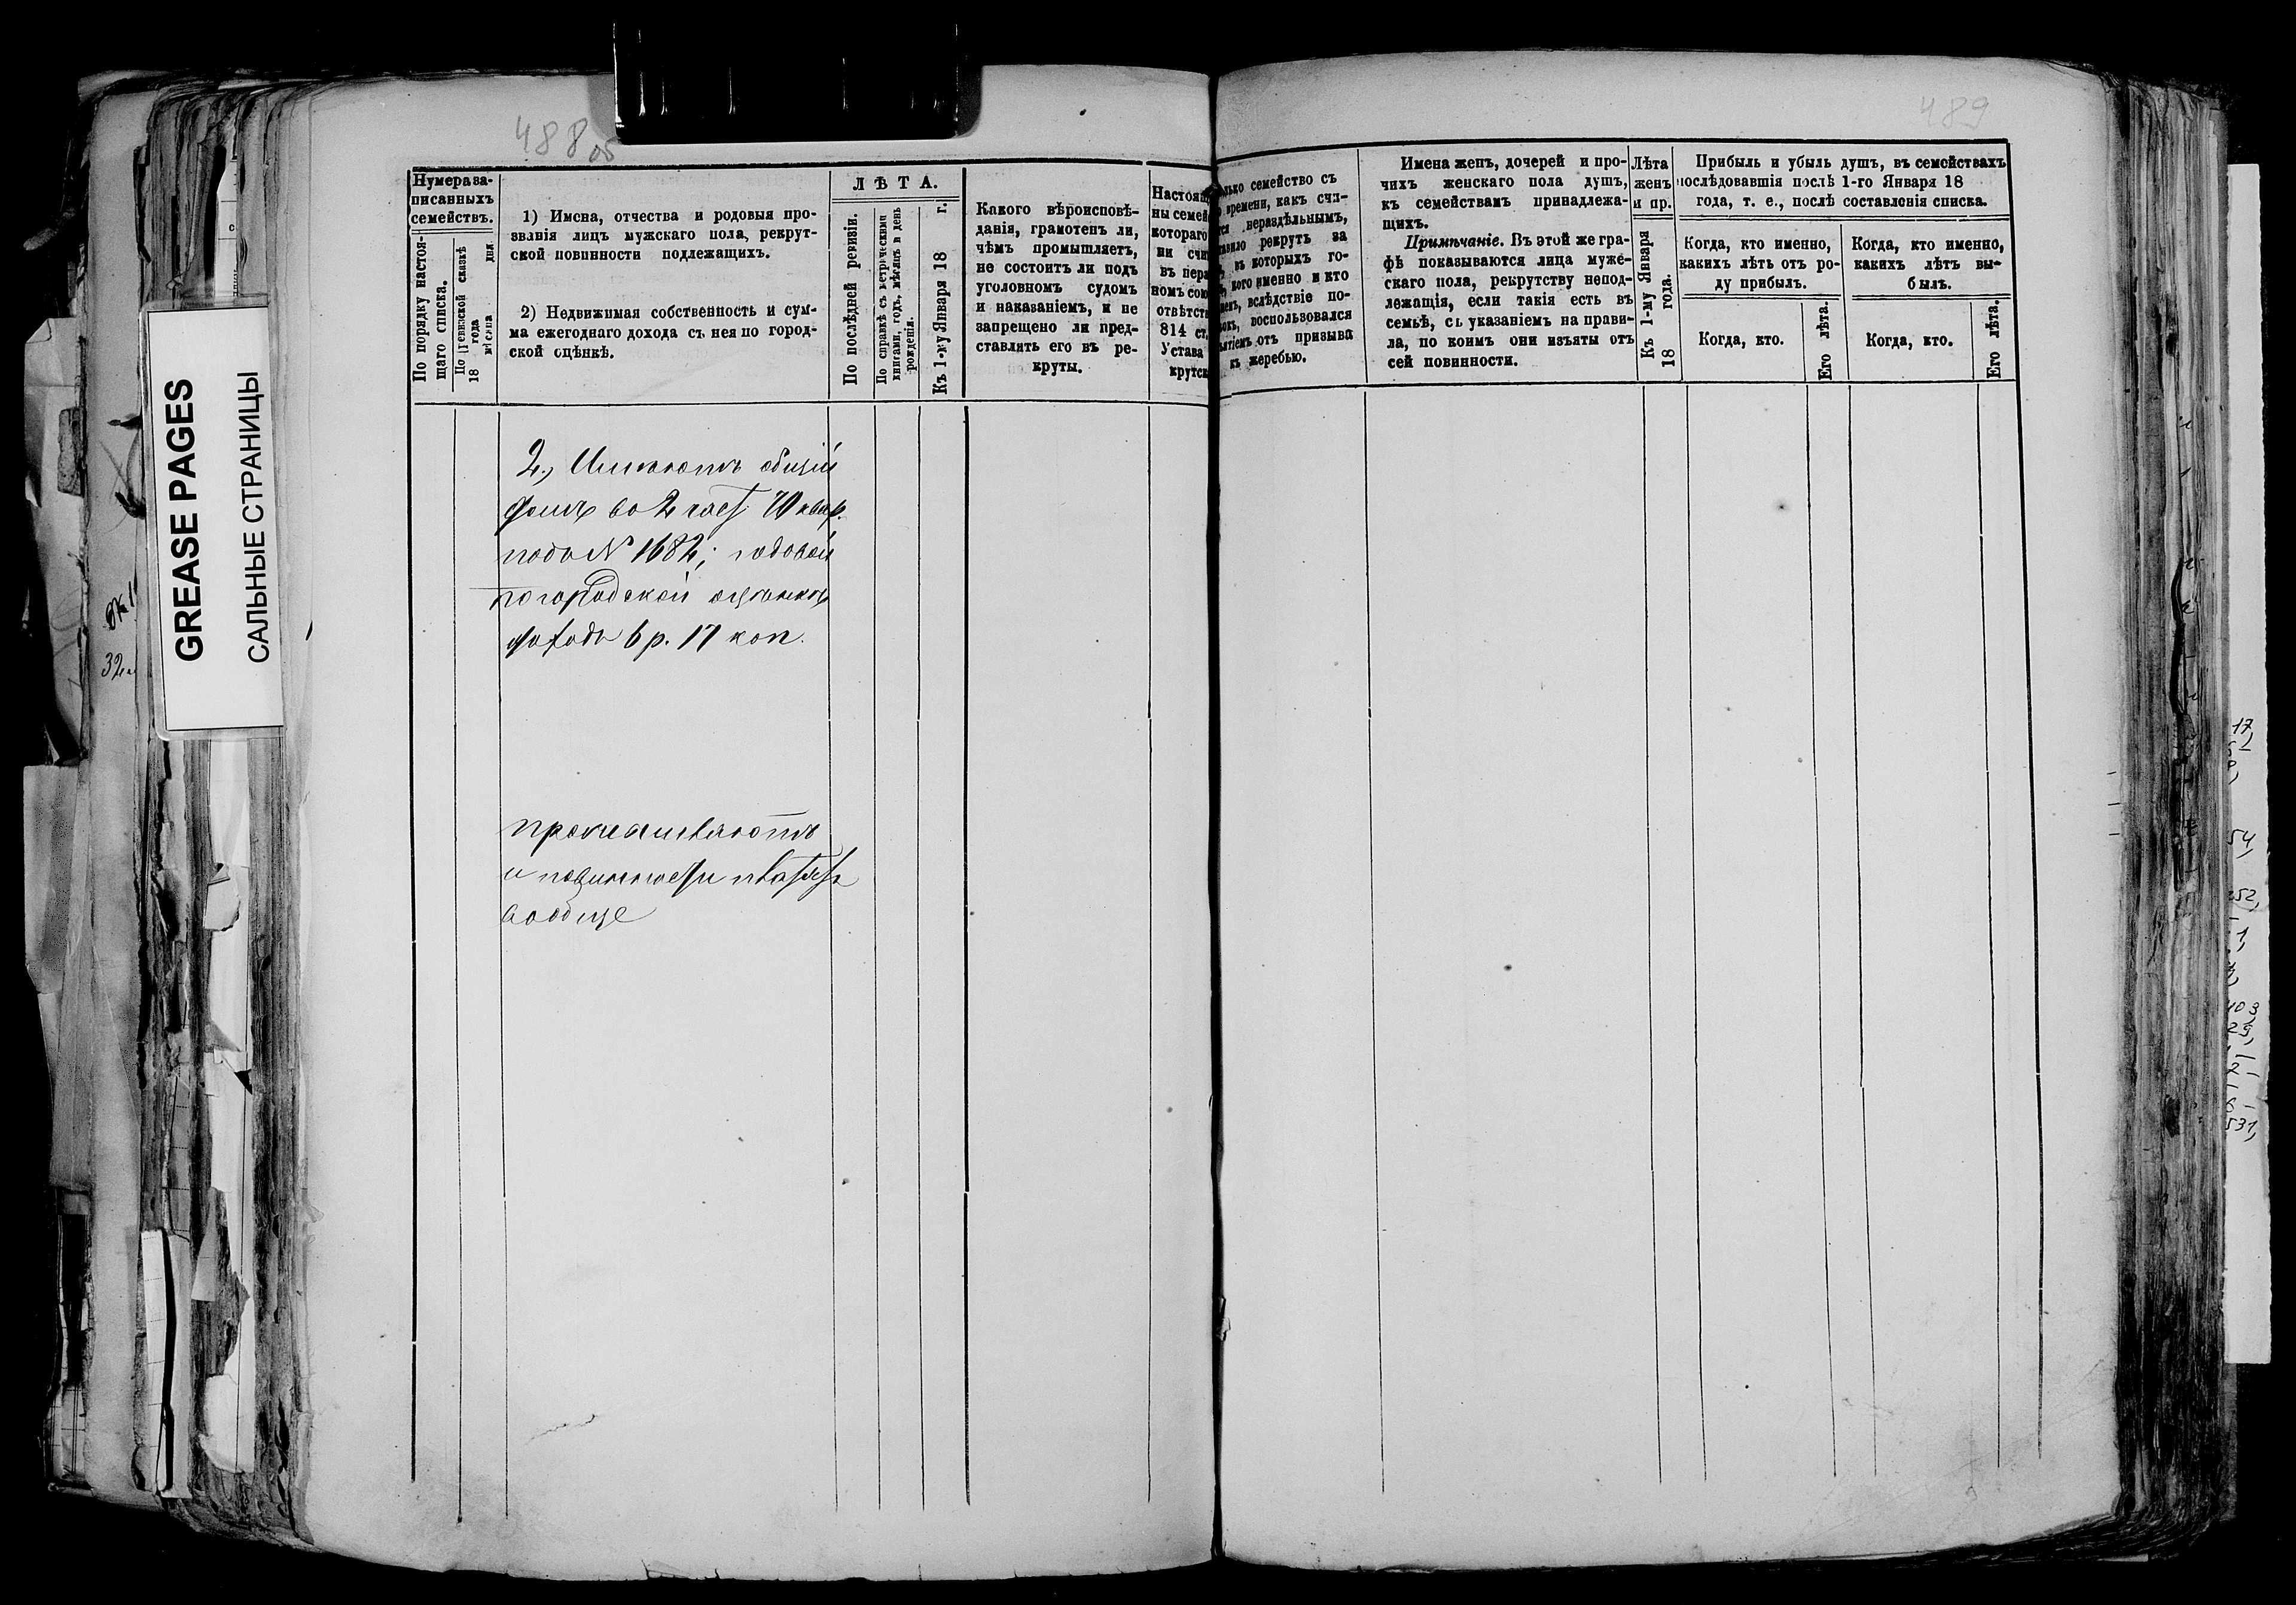 488 об
489
GREASE PAGES
САЛЬНЫЕ СТРАНИЦЫ
Нумера за-
писанныхъ
семействъ.
По порядку настоя-
щаго списка.
По ревизской сказкѣ
18 года
мѣсяца дня.
1) Имена, отчества и родовыя про-
званія лицъ мужскаго пола, рекрут-
ской повинности подлежащихъ.
2) Недвижимая собственность и сум-
ма ежегоднаго дохода съ нея по город-
ской оцѣнкѣ.
ЛѢТА.
По послѣдней ревизіи.
По справкѣ съ метрическими
книгами, годъ, мѣсяцъ и день
рожденія.
Къ 1-му Января 18 г.
Какого вѣроисповѣ-
данія, грамотенъ ли,
чѣмъ промышляетъ,
не состоитъ ли подъ
уголовномъ судомъ
и наказаніемъ, и не
запрещено ли пред-
ставлять его въ ре-
круты.
Настоящ
ны семей
котораго
ни счи
въ нера
номъ сою
отвѣтств
814 ст.
Устава
крутск
семейство съ
времени, какъ счи-
нераздѣльнымъ,
рекрутъ за
въ которыхъ го-
кого именно и кто
вслѣдствіе по-
воспользовался
отъ призыва
къ жеребью.
Имена женъ, дочерей и про-
чихъ женскаго пола душъ,
къ семействамъ принадлежа-
щихъ.
Примѣчаніе. Въ этой же гра-
фѣ показываются лица муже-
скаго пола, рекрутству непод-
лежащія, если такія есть въ
семьѣ, съ указаніемъ на прави-
ла, по коимъ они изъяты отъ
сей повинности.
Лѣта
женъ
и пр.
Къ 1-му Января
18 года.
Прибыль и убыль душъ, въ семействахъ
послѣдовавшія послѣ 1-го Января 18
года, т. е., послѣ составленія списка.
Когда, кто именно,
какихъ лѣтъ отъ ро-
ду прибылъ.
Когда, кто.
Его лѣта.
Когда, кто именно,
какихъ лѣтъ вы-
былъ.
Когда, кто.
Его лѣта.
2., Имѣютъ общій
домъ во 2 част. 70 квар.
подъ № 1682; годовой
по городской оцѣнкѣ
доходъ 6 р. 17 коп.
и повинности платятъ
вообще